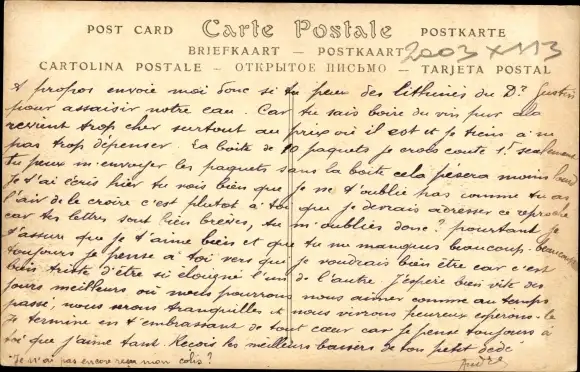 POST CARD Carte Postale POSTKARTE
BRIEFKAART — POSTKAART
2003 x 113
CARTOLINA POSTALE — ОТКРЫТОЕ ПИСЬМО — TARJETA POSTAL
A propos envoie moi donc si tu peux des lithinés du Dr. Gustin
pour assaisir notre eau. Car tu sais boire du vin pur ala
revient trop cher surtout au prix où il est et je tiens à ne
pas trop dépenser. La boîte de 10 paquets je crois coute 1f. seulement
tu peux m'envoyer les paquets sans la boîte cela pèsera moins lourd
Je t'ai écris hier tu vois bien que je ne t'oublie pas comme tu as
l'air de le croire c'est plutôt à toi que je devrais adresser ce reproche
car tes lettres sont bien brèves, tu m'oublies donc ? pourtant je
t'assure que je t'aime bien et que tu me manques beaucoup. beaucoup
toujours je pense à toi vers qui je voudrais bien être car c'est
bien triste d'être si éloigné l'un de l'autre. J'espère bien vite des
jours meilleurs où nous pourrons nous aimer comme au temps
passé, nous serons tranquilles et nous vivrons heureux espérons-le
Je termine en t'embrassant de tout cœur car je pense toujours à
toi que j'aime tant. Reçois les meilleurs baisers de ton petit dédé
André
Je n'ai pas encore reçu mon colis ?